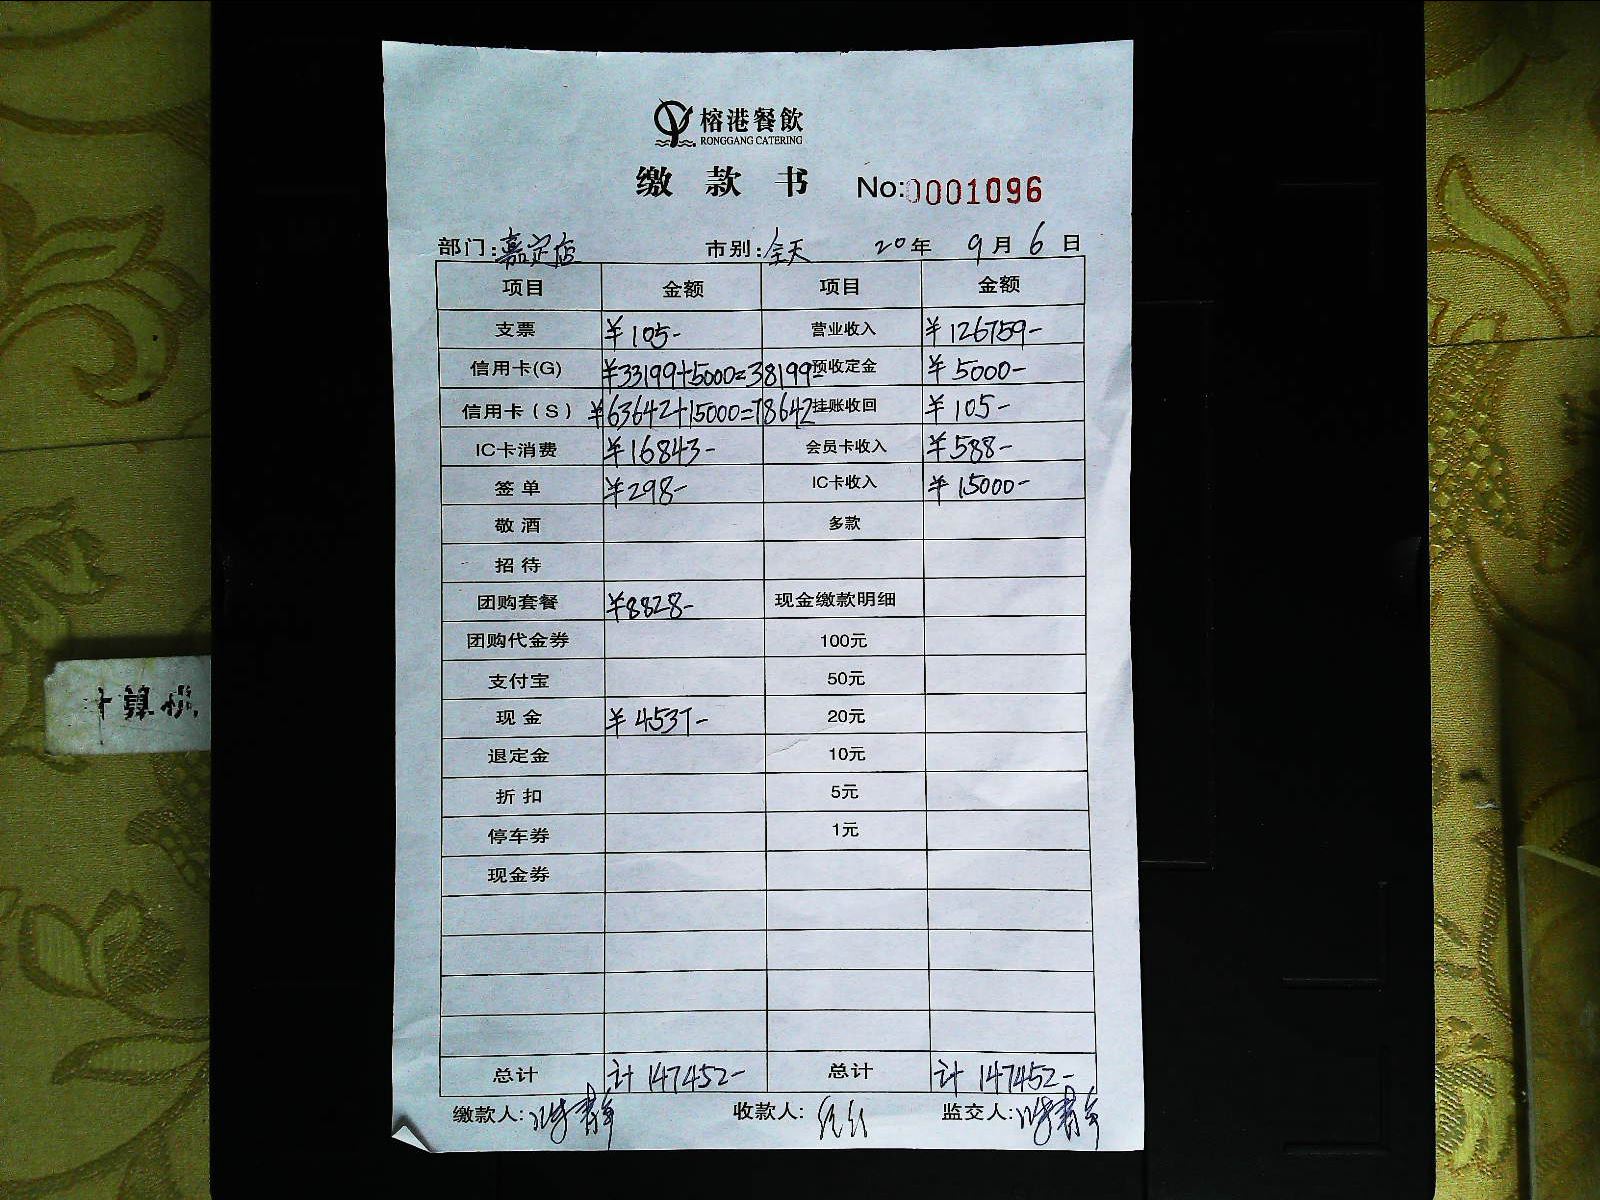 榕港餐飲
RONGGANG CATERING
缴款书 No:0001096
部门:嘉定店 市别:全天 20年 9月 6日
项目 金额 项目 金额
支票 ¥105- 营业收入 ¥126759-
信用卡(G) ¥33199+5000=38199- 预收定金 ¥5000-
信用卡(S) ¥63642+15000=78642- 挂账收回 ¥105-
IC卡消费 ¥16843- 会员卡收入 ¥588-
签单 ¥298- IC卡收入 ¥15000-
敬酒 多款
招待
团购套餐 ¥8828- 现金缴款明细
团购代金券 100元
支付宝 50元
现金 ¥4537- 20元
退定金 10元
折扣 5元
停车券 1元
现金券
总计 计147452- 总计 计147452-
缴款人: 收款人: 监交人:
算机